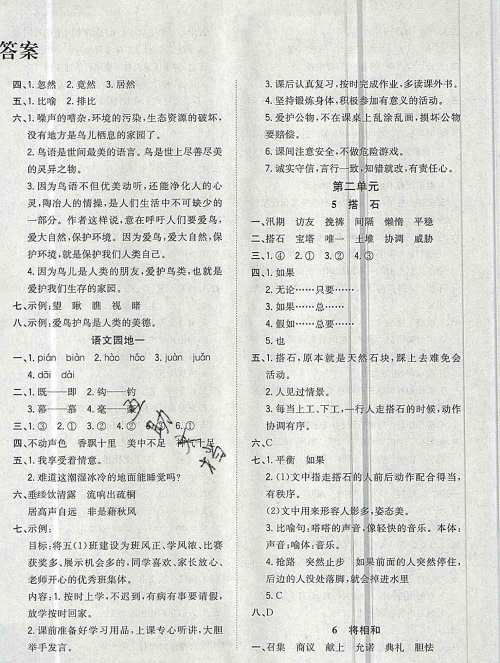 答案
四、1. 忽然 2. 竟然 3. 居然
五、1. 比喻 2. 排比
六、1. 噪声的嘈杂,环境的污染,生态资源的破坏,
没有地方是鸟儿栖息的家园了。
2. 鸟语是世间最美的语言。鸟是世上尽善尽美
的灵异之物。
3. 因为鸟语不但优美动听,还能净化人的心
灵,陶冶人的情操,是人们生活中不可缺少的
一部分。作者这样说,意在呼吁人们要爱鸟,
爱大自然,保护环境。因为爱鸟,爱大自然,保
护环境,就是保护我们人类自己。
4. 因为鸟儿是人类的朋友,爱护鸟儿,也就是爱护
我们生存的家园。
七、示例:望 瞅 瞧 视 睹
八、示例:爱鸟护鸟是人类的美德。
语文园地一
一、1. pián biàn 2. hào hǎo 3. juàn juǎn
4. dāi dài
二、1. 既——即 2. 钩——钓
3. 慕——暮 4. 毫——豪
三、1. ③ 2. ① 3. ② 4. ③
四、不动声色 香飘十里 美中不足 神气十足
五、1. 我享受着情意。
2. 难道这潮湿冰冷的地面能睡觉吗?
六、垂緌饮清露 流响出疏桐
居高声自远 非是藉秋风
七、示例:
目标:将五(1)班建设为班风正、学风浓、比赛
获奖多、展示机会多的,同学喜欢、家长放心、
老师开心的优秀班集体。
内容:1. 按时上学,不迟到,有事有病要请假,
放学按时回家。
2. 课前准备好学习用品,上课专心听讲,大胆
举手发言。
3. 课后认真复习,按时完成作业,多读课外书。
4. 坚持锻炼身体,积极参加有意义的活动。
5. 爱护公物,不在课桌上乱涂乱画,损坏公物
要赔偿。
6. 课间注意安全,不做危险游戏。
7. 诚实守信,言行一致,知错就改,有责任心。
第二单元
5 搭石
一、汛期 访友 挽裤 间隔 懒惰 平稳
二、搭石 宝塔 唯一 土堆 协调 威胁
三、1. ④ 2. ① 3. ② 4. ③
四、1. 如果
2. 无论……只要……
3. 如果……总……
4. 假如……总要……
5. 也
五、1. 搭石,原本就是天然石块,踩上去难免会
活动。
2. 人见过情景。
3. 每当上工、下工,一行人走搭石的时候,动作
协调有序。
六、C
七、1. 平衡 如果
2. (1)文中指走搭石的人前后动作配合得当,
有秩序。
(2)文中用来形容人影多,姿态美。
3. 比喻句:嗒嗒的声音,像轻快的音乐。本体:
声音;喻体:音乐。
4. 抢路 突然止步 如果前面的人突然停住,
后边的人没处落脚,就会掉进水里
5. C
八、D
6 将相和
一、召集 商议 献上 允诺 典礼 胆怯